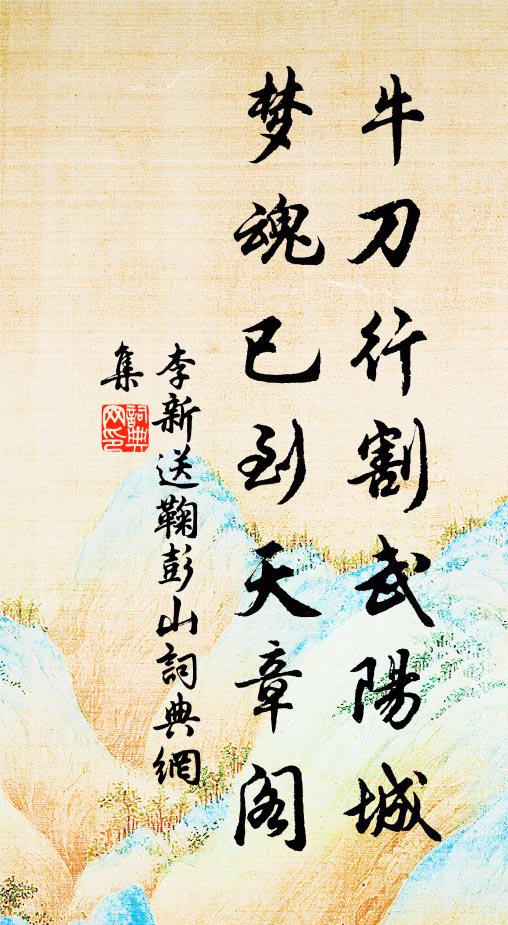 牛刀行割武陽城
梦魂已到天章阁
李新送鞠彭山詞典網
集
詞典
网印